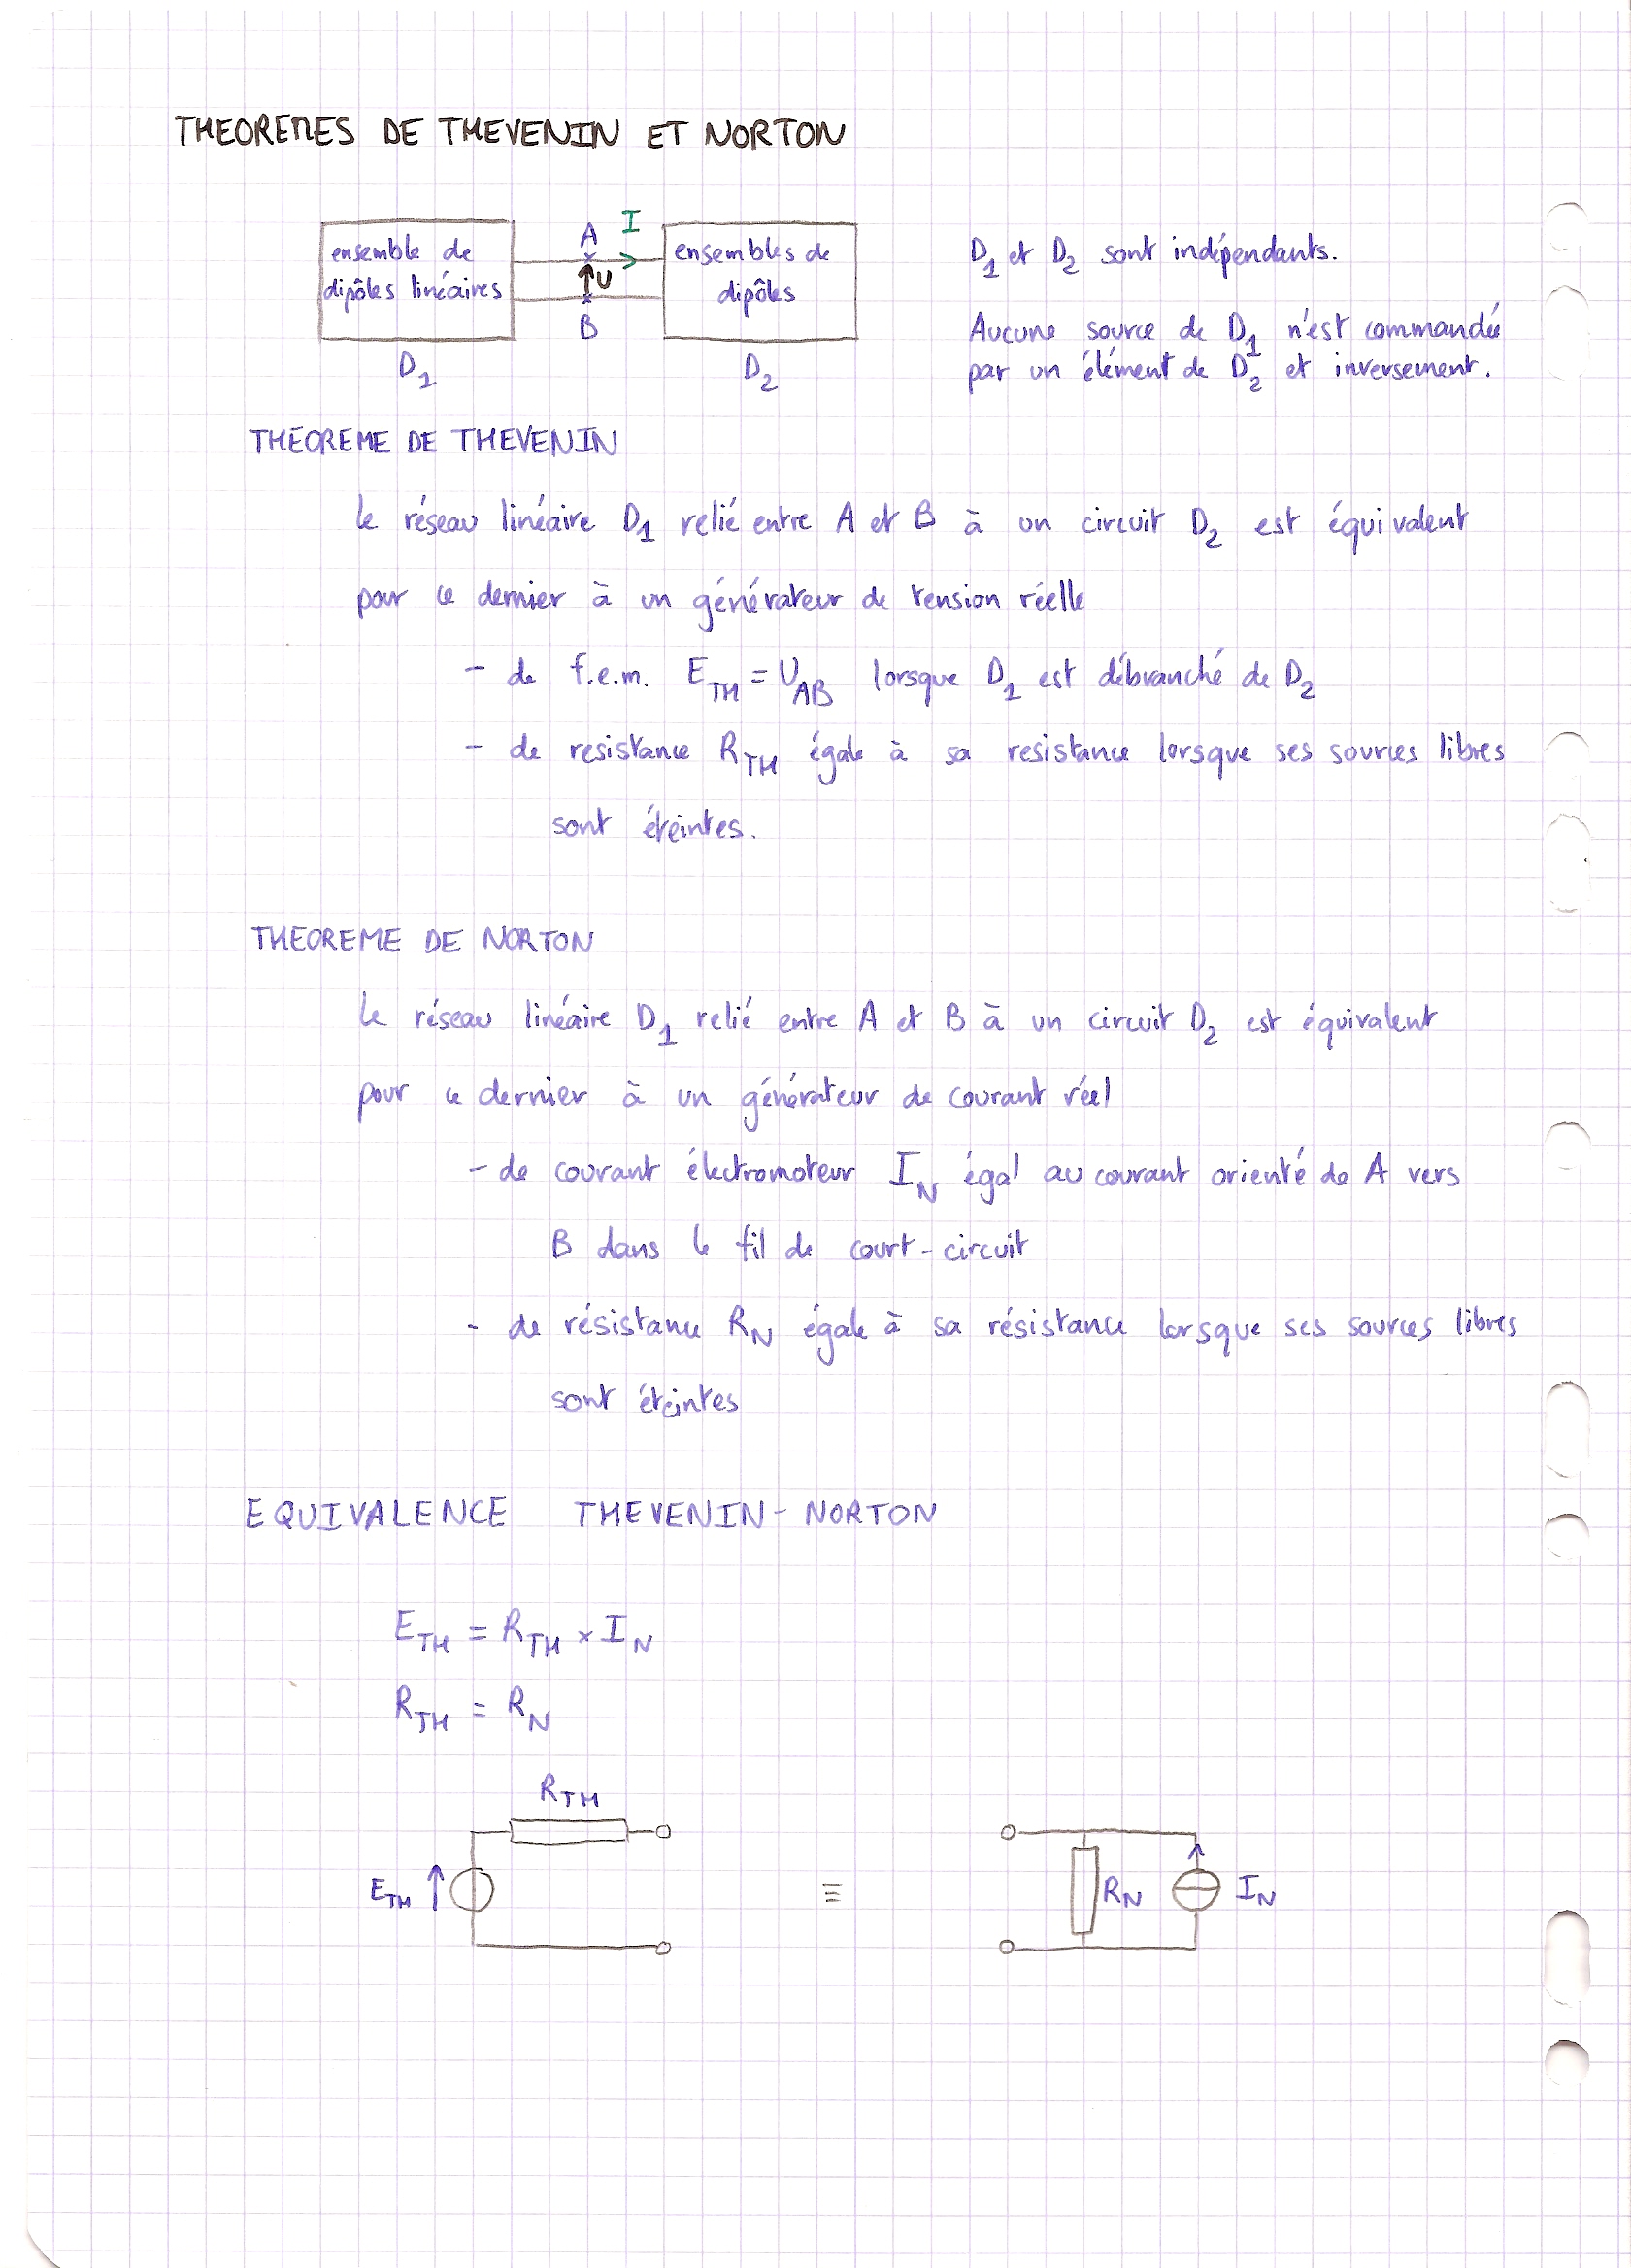 THEOREMES DE THEVENIN ET NORTON
I
A
ensemble de
dipôles linéaires
U
ensembles de
dipôles
B
D1
D2
D1 et D2 sont indépendants.
Aucune source de D1 n'est commandée
par un élément de D2 et inversement.
THEOREME DE THEVENIN
le réseau linéaire D1 relié entre A et B à un circuit D2 est équivalent
pour ce dernier à un générateur de tension réelle
- de f.e.m. ETH = UAB lorsque D1 est débranché de D2
- de resistance RTH égale à sa resistance lorsque ses sources libres
sont éteintes.
THEOREME DE NORTON
le réseau linéaire D1 relié entre A et B à un circuit D2 est équivalent
pour ce dernier à un générateur de courant réel
- de courant électromoteur IN égal au courant orienté de A vers
B dans le fil de court-circuit
- de résistance RN égale à sa résistance lorsque ses sources libres
sont éteintes
EQUIVALENCE THEVENIN-NORTON
ETH = RTH × IN
RTH = RN
RTH
ETH
≡
RN
IN